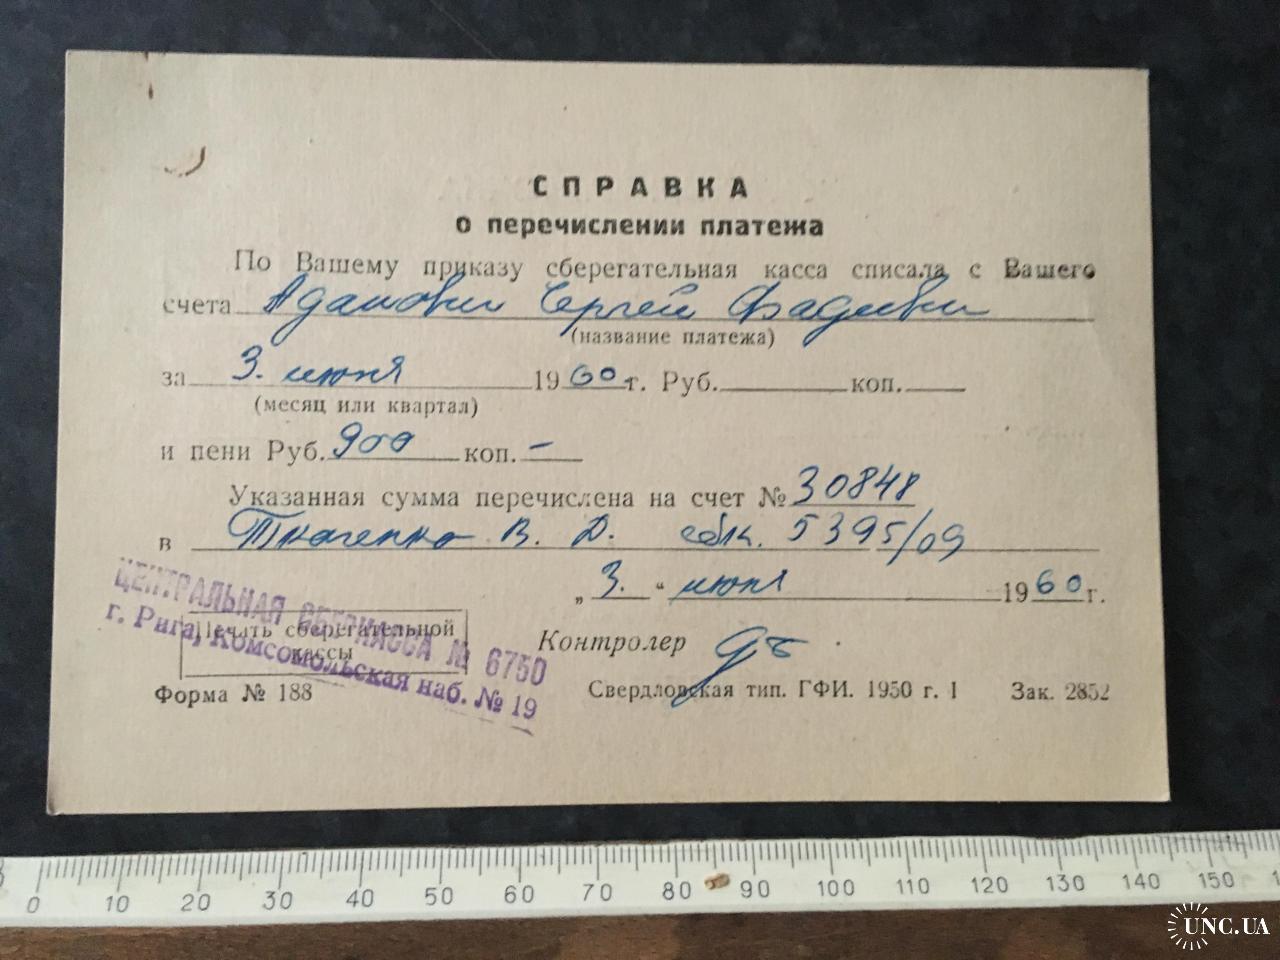 СПРАВКА
о перечислении платежа
По Вашему приказу сберегательная касса списала с Вашего
счета Адамович Сергей Фадеевич
(название платежа)
за 3. июня 1960 г. Руб. коп.
(месяц или квартал)
и пени Руб. 900 коп. –
Указанная сумма перечислена на счет № 30848
в Ткаченко В. Д. сбк. 5395/09
„ 3. “ июня 1960 г.
ЦЕНТРАЛЬНАЯ СБЕРКАССА № 6750
г. Рига, Комсомольская наб. № 19
Печать сберегательной
кассы
Контролер
Форма № 188
Свердловская тип. ГФИ. 1950 г. 1 Зак. 2852
0 10 20 30 40 50 60 70 80 90 100 110 120 130 140 150
UNC.UA